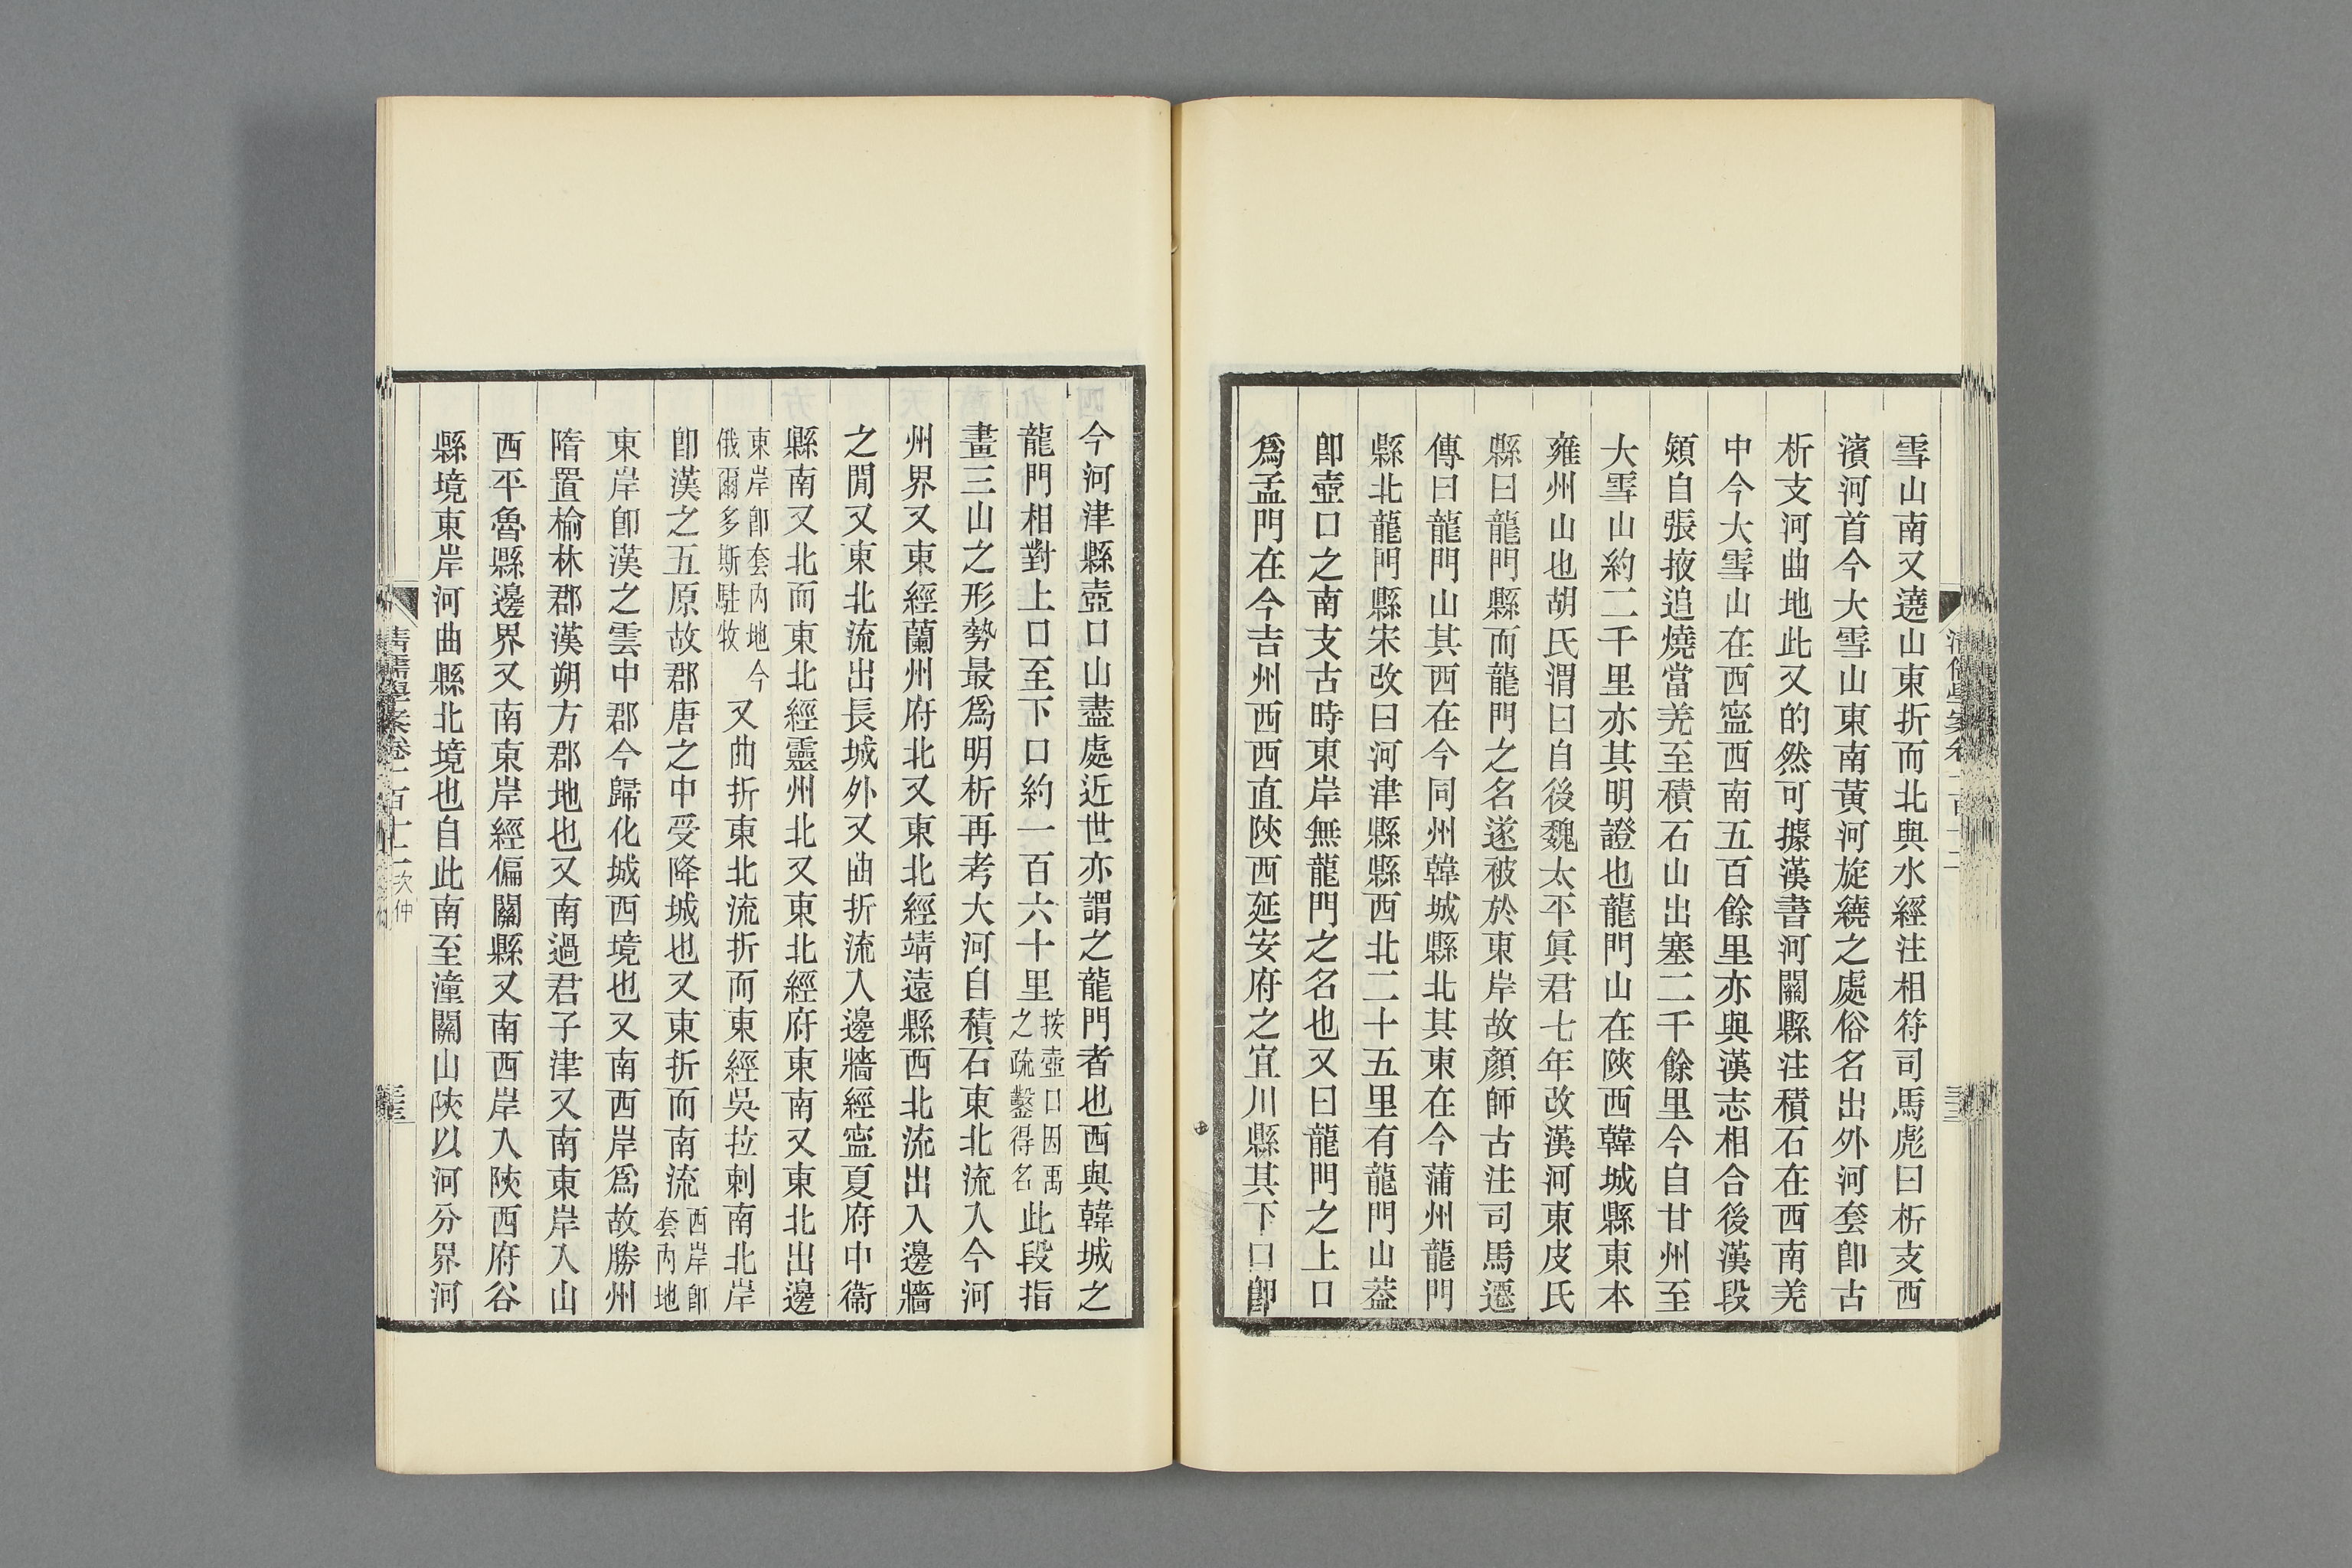 雪山南又遶山東折而北與水經注相符司馬彪曰析支西
濱河首今大雪山東南黃河旋繞之處俗名出外河套卽古
析支河曲地此又的然可據漢書河關縣注積石在西南羌
中今大雪山在西寧西南五百餘里亦與漢志相合後漢段
熲自張掖追燒當羌至積石山出塞二千餘里今自甘州至
大雪山約二千里亦其明證也龍門山在陝西韓城縣東本
雍州山也胡氏渭曰自後魏太平眞君七年改漢河東皮氏
縣曰龍門縣而龍門之名遂被於東岸故顏師古注司馬遷
傳曰龍門山其西在今同州韓城縣北其東在今蒲州龍門
縣北龍門縣宋改曰河津縣縣西北二十五里有龍門山葢
卽壺口之南支古時東岸無龍門之名也又曰龍門之上口
爲孟門在今吉州西西直陝西延安府之宜川縣其下口卽
今河津縣壺口山盡處近世亦謂之龍門者也西與韓城之
龍門相對上口至下口約一百六十里按壺口因禹之疏鑿得名此段指
畫三山之形勢最爲明析再考大河自積石東北流入今河
州界又東經蘭州府北又東北經靖遠縣西北流出入邊牆
之閒又東北流出長城外又曲折流入邊牆經寧夏府中衛
縣南又北而東北經靈州北又東北經府東南又東北出邊
東岸卽套內地今俄爾多斯駐牧又曲折東北流折而東經吳拉剌南北岸
卽漢之五原故郡唐之中受降城也又東折而南流西岸卽套內地
東岸卽漢之雲中郡今歸化城西境也又南西岸爲故勝州
隋置榆林郡漢朔方郡地也又南過君子津又南東岸入山
西平魯縣邊界又南東岸經偏關縣又南西岸入陝西府谷
縣境東岸河曲縣北境也自此南至潼關山陝以河分界河
清儒學案卷一百十二 次仲